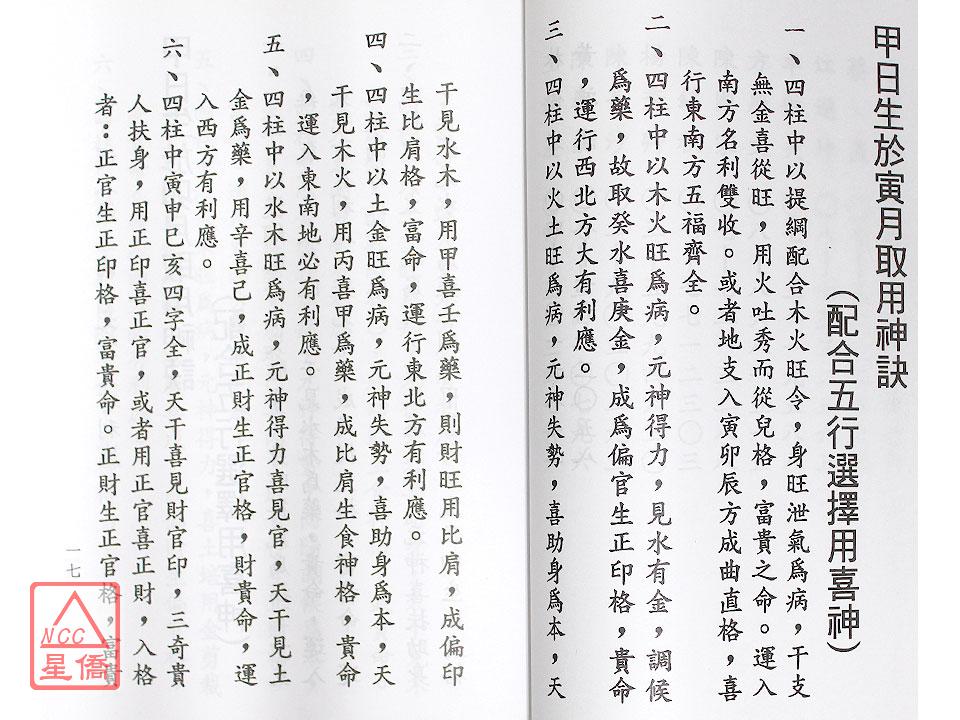 甲日生於寅月取用神訣
（配合五行選擇用喜神）
一、四柱中以提綱配合木火旺令，身旺泄氣爲病，干支
無金喜從旺，用火吐秀而從兒格，富貴之命。運入
南方名利雙收。或者地支入寅卯辰方成曲直格，喜
行東南方五福齊全。
二、四柱中以木火旺爲病，元神得力，見水有金，調候
爲藥，故取癸水喜庚金，成爲偏官生正印格，貴命
，運行西北方大有利應。
三、四柱中以火土旺爲病，元神失勢，喜助身爲本，天
干見水木，用甲喜壬爲藥，則財旺用比肩，成偏印
生比肩格，富命，運行東北方有利應。
四、四柱中以土金旺爲病，元神失勢，喜助身爲本，天
干見木火，用丙喜甲爲藥，成比肩生食神格，貴命
，運入東南地必有利應。
五、四柱中以水木旺爲病，元神得力喜見官，天干見土
金爲藥，用辛喜己，成正財生正官格，財貴命，運
入西方有利應。
六、四柱中寅申巳亥四字全，天干喜見財官印，三奇貴
人扶身，用正印喜正官，或者用正官喜正財，入格
者：正官生正印格，富貴命。正財生正官格，富貴
一七
NCC
星僑